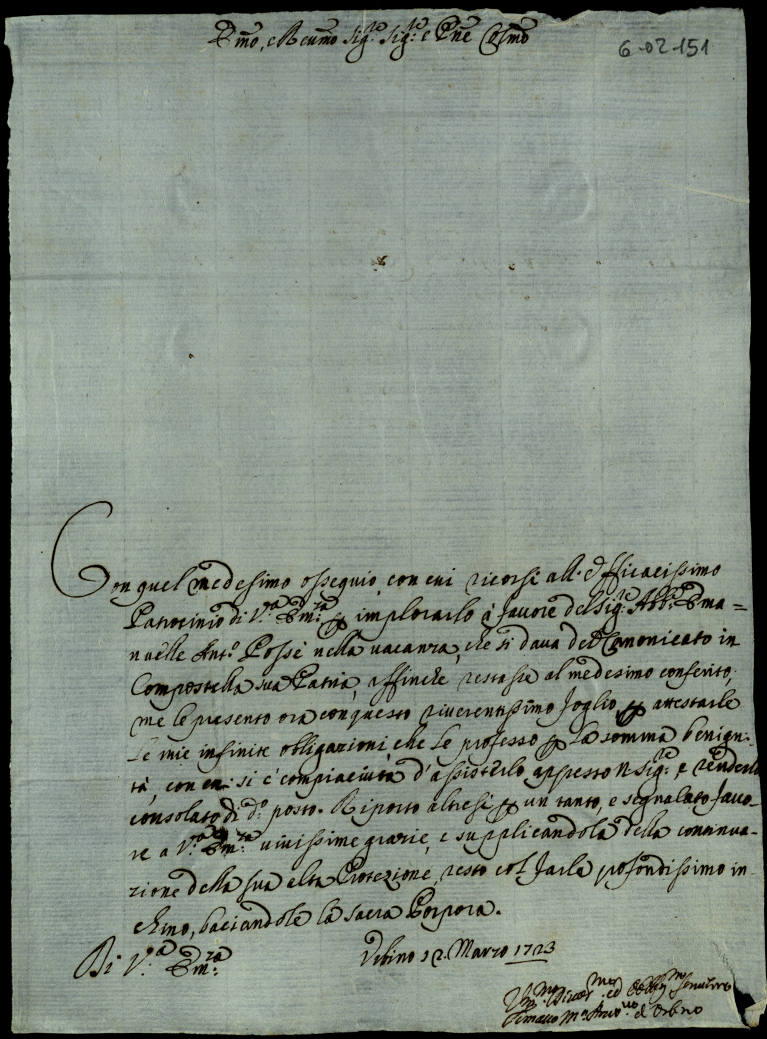 Em̃o, e Reum̃o Sig.re Sig.re e Pñe Colm̃o
6-02-151
Con quel medesimo ossequio, con cui ricorsi all'efficacissimo
Patrocinio di V.ra Em.za p implorarlo à favore del Sig.re Abb.e Ema=
nuelle Ant.o Posse nella vacanza, che si dava del Canonicato in
Compostella sua Patria, affinche restasse al medesimo conferito,
me le presento ora con questo riverentissimo foglio p attestarle
le mie infinite obligazioni, che le professo p la somma benign-
tà, con cui si è compiaciuta d'assisterlo appresso N. Sig.re e renderlo
consolato di d.o posto. Riporto altresi p un tanto, e segnalato favo-
re a V.ra Em.za vivissime grazie, e supplicandola della continua-
zione della sua alta Protezione, resto col farle profondissimo in-
chino, baciandole la sacra Porpora.
Di V.ra Em.za
Urbino 12. Marzo 1723
Um.mo Divot.mo ed Obblig.mo Servitore
Tomaso M.a Arciv.vo d'Urbino